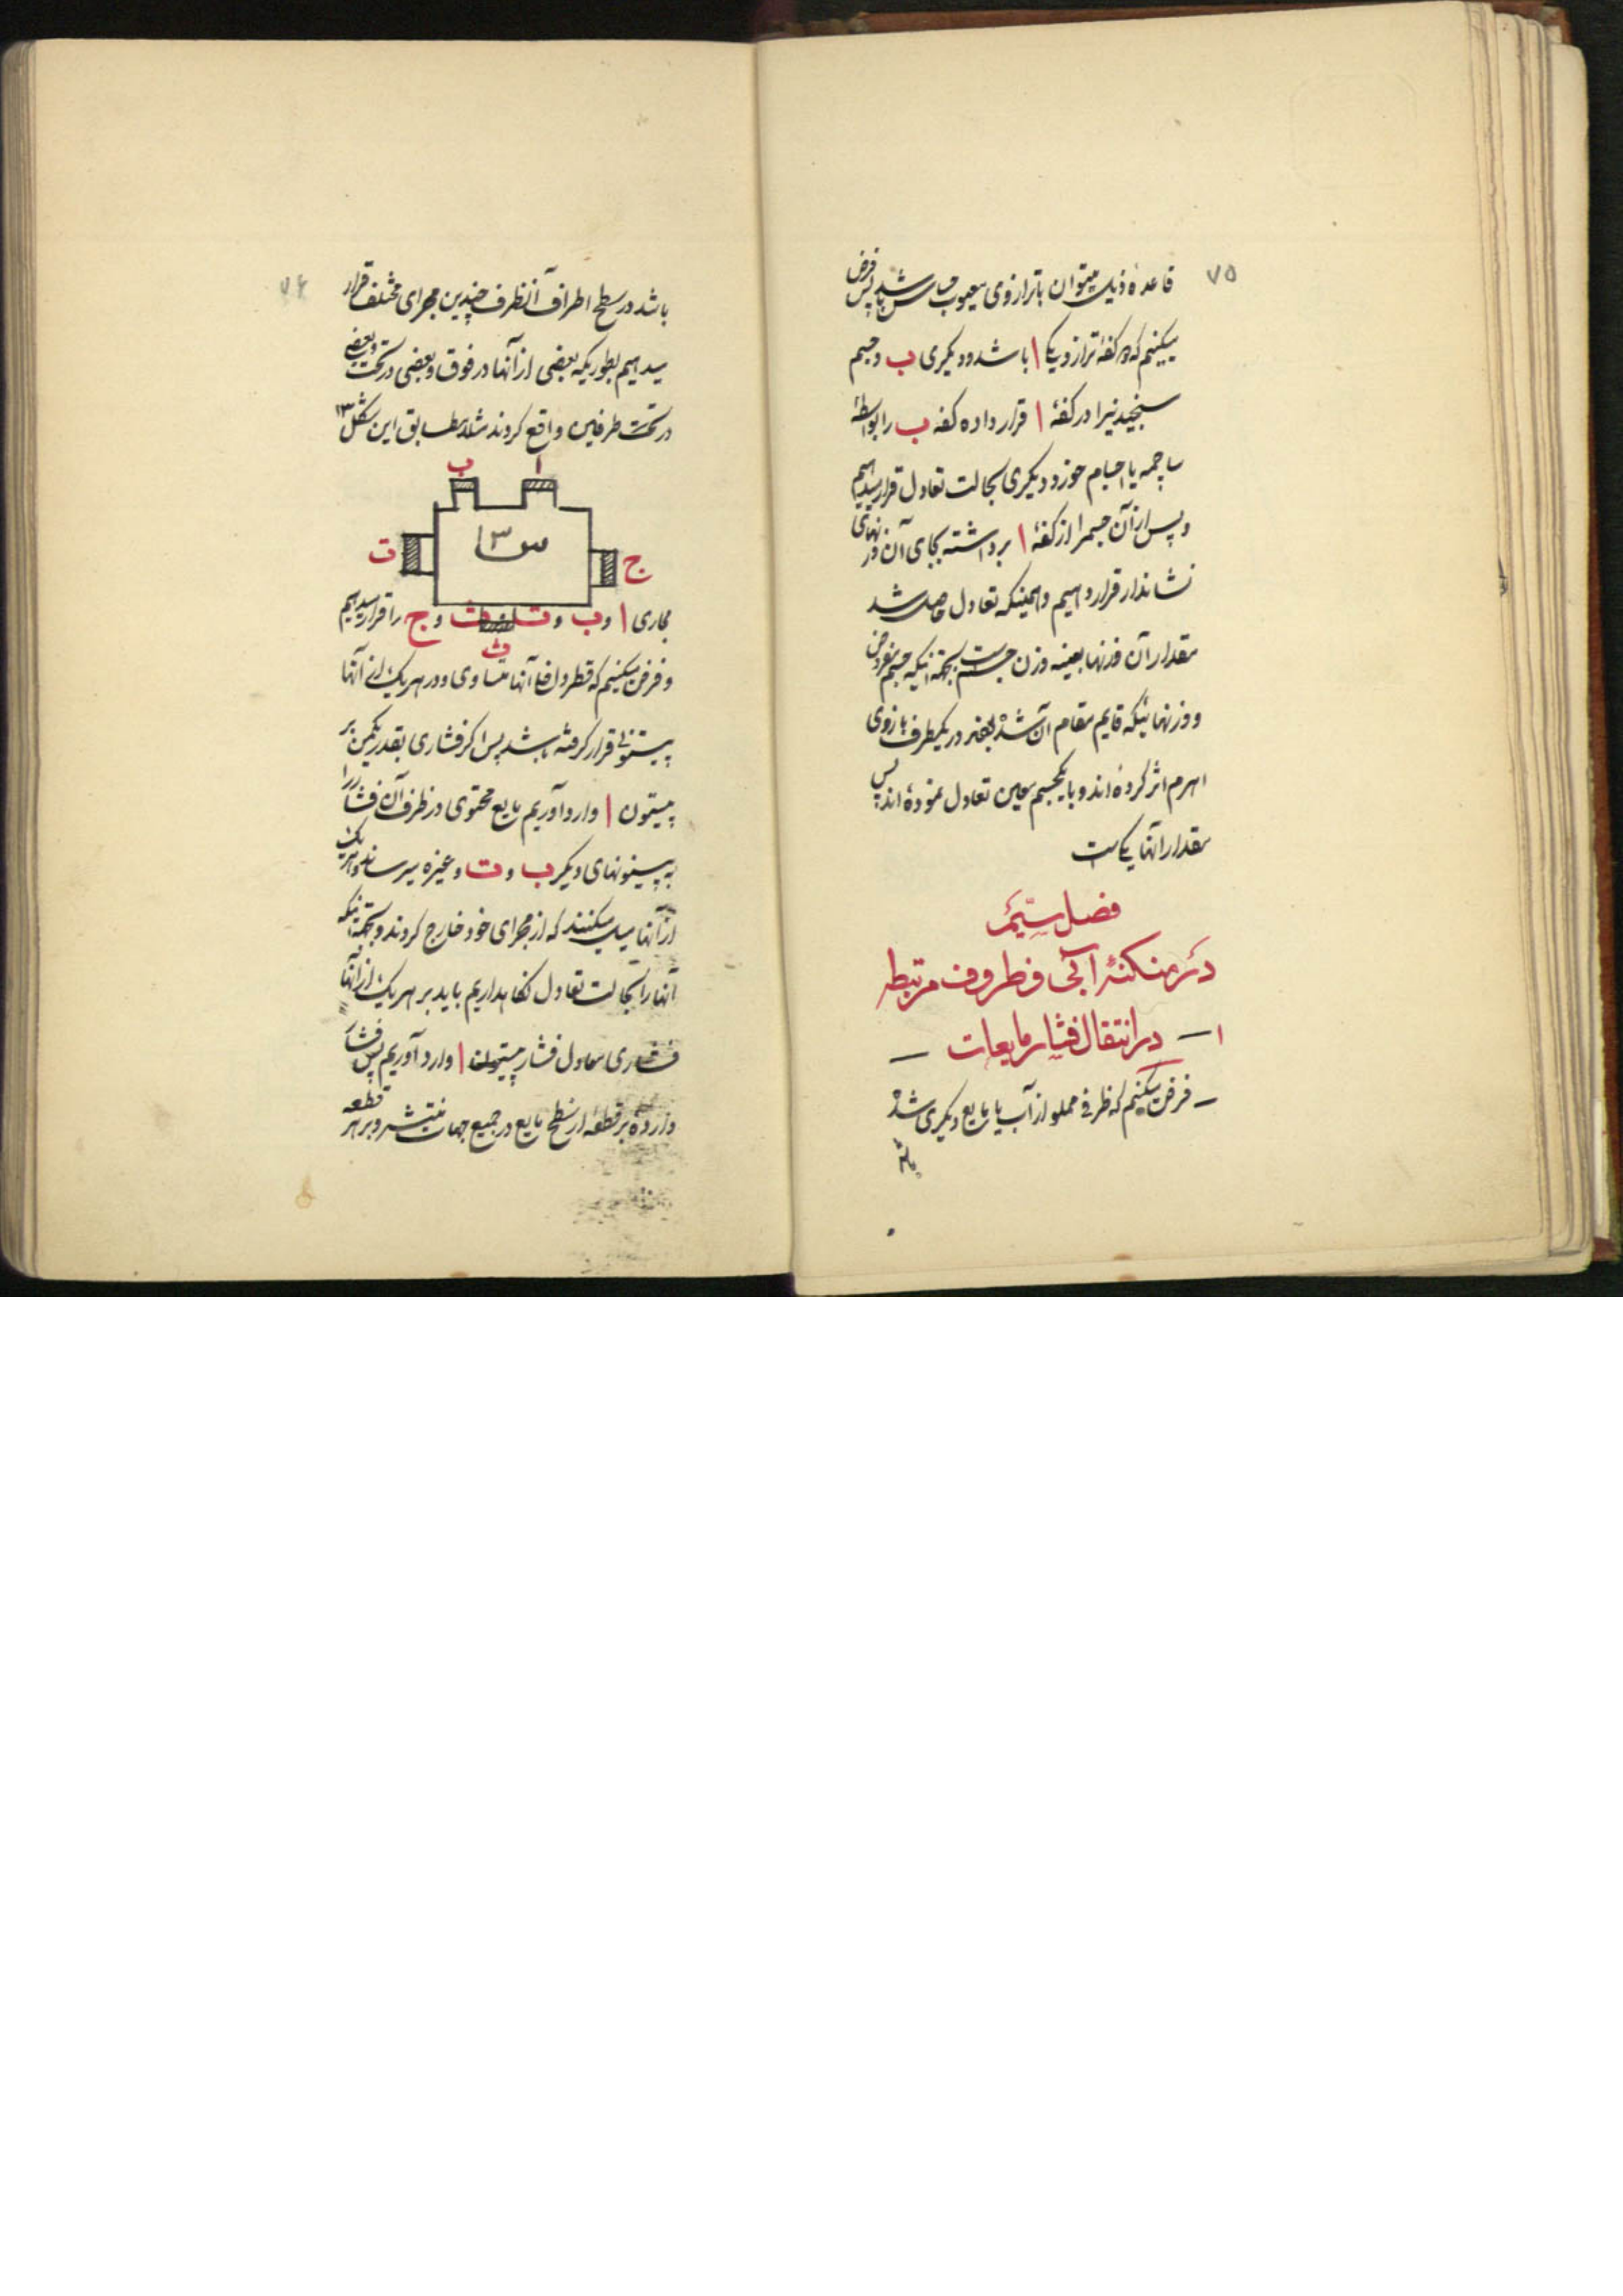 ۷۵
قاعدهٔ ذیل میتوان با ترازوی معیوب حساس باشد پس فرض
میکنیم که دو کفهٔ ترازو یکی ا باشد و دیگری ب و جسم
سنجیدنیرا در کفهٔ ا قرار داده کفه ب را بواسطهٔ
ساچمه یا اجسام خورد دیگری بحالت تعادل قرار میدهیم
و پس از آن جسمرا از کفهٔ ا برداشته بجای آن وزنهای
نشاندار قرار دهیم و همینکه تعادل حاصل شد
مقدار آن وزنها بعینه وزن جسم است بجهة اینکه جسم مفروض
و وزنهائیکه قایم مقام آن شده در یکطرف بازوی
اهرم اثر کرده‌اند و با یکجسم معین تعادل نموده‌اند پس
مقدار آنها یکی است
فصل سیّم
در منکنهٔ آبی و ظروف مرتبطه
۱ — در انتقال فشار مایعات —
— فرض میکنیم که ظرفی مملو از آب یا مایع دیگری شده
باشد
۷۶
باشد در سطح اطراف آنظرف چندین مجرای مختلف قرار
میدهیم بطوریکه بعضی از آنها در فوق و بعضی در تحت و بعضی
در تحت طرفین واقع گردند مثلا مطابق این شکل ۱۳
ب ا
ت س ۱۳ ج
ث
مجاری ا و ب و ت و ث و ج را قرار میدهیم
و فرض میکنیم که قطر دهنهٔ آنها متساوی و در هر یک از آنها
پیستونی قرار گرفته باشد پس اگر فشاری بقدر یکمن بر
پیستون ا وارد آوریم مایع محتوی در ظرف آن فشار را
به پیستونهای دیگر ب و ت و غیره میرساند و هر یک
از آنها میل میکنند که از مجرای خود خارج گردند و بجهة اینکه
آنها را بحالت تعادل نگاهداریم باید بر هر یک از آنها
فشاری معادل فشار پیستون ا وارد آوریم پس فشار
وارده بر قطعهٔ از سطح مایع در جمیع جهات منتشر و بر هر قطعه